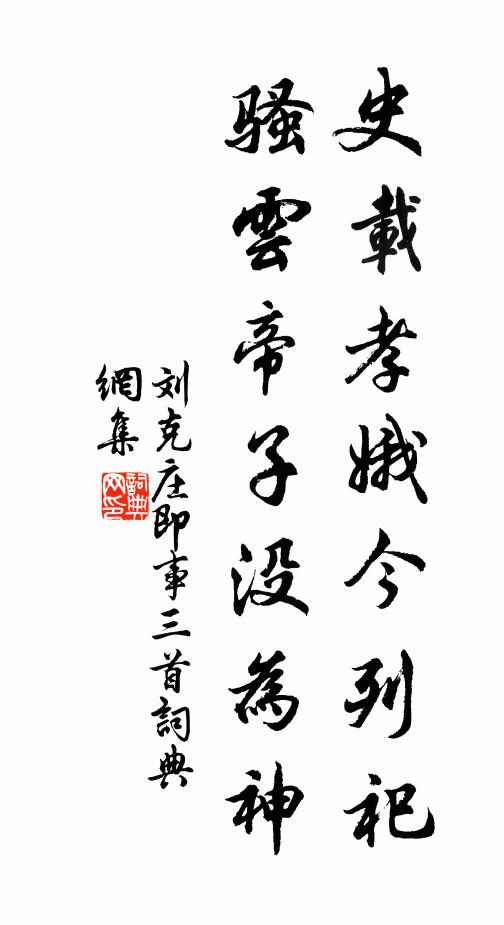 史載孝娥今列祀
騷雲帝子没為神
刘克庄即事三首詞典
網集
詞典
网印